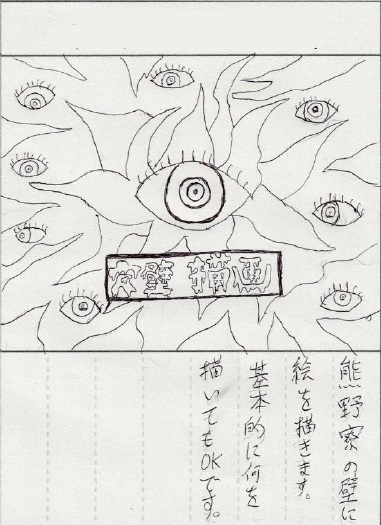 穴壁描画
熊野寮の壁に
絵を描きます。
基本的に何を
描いてもOKです。